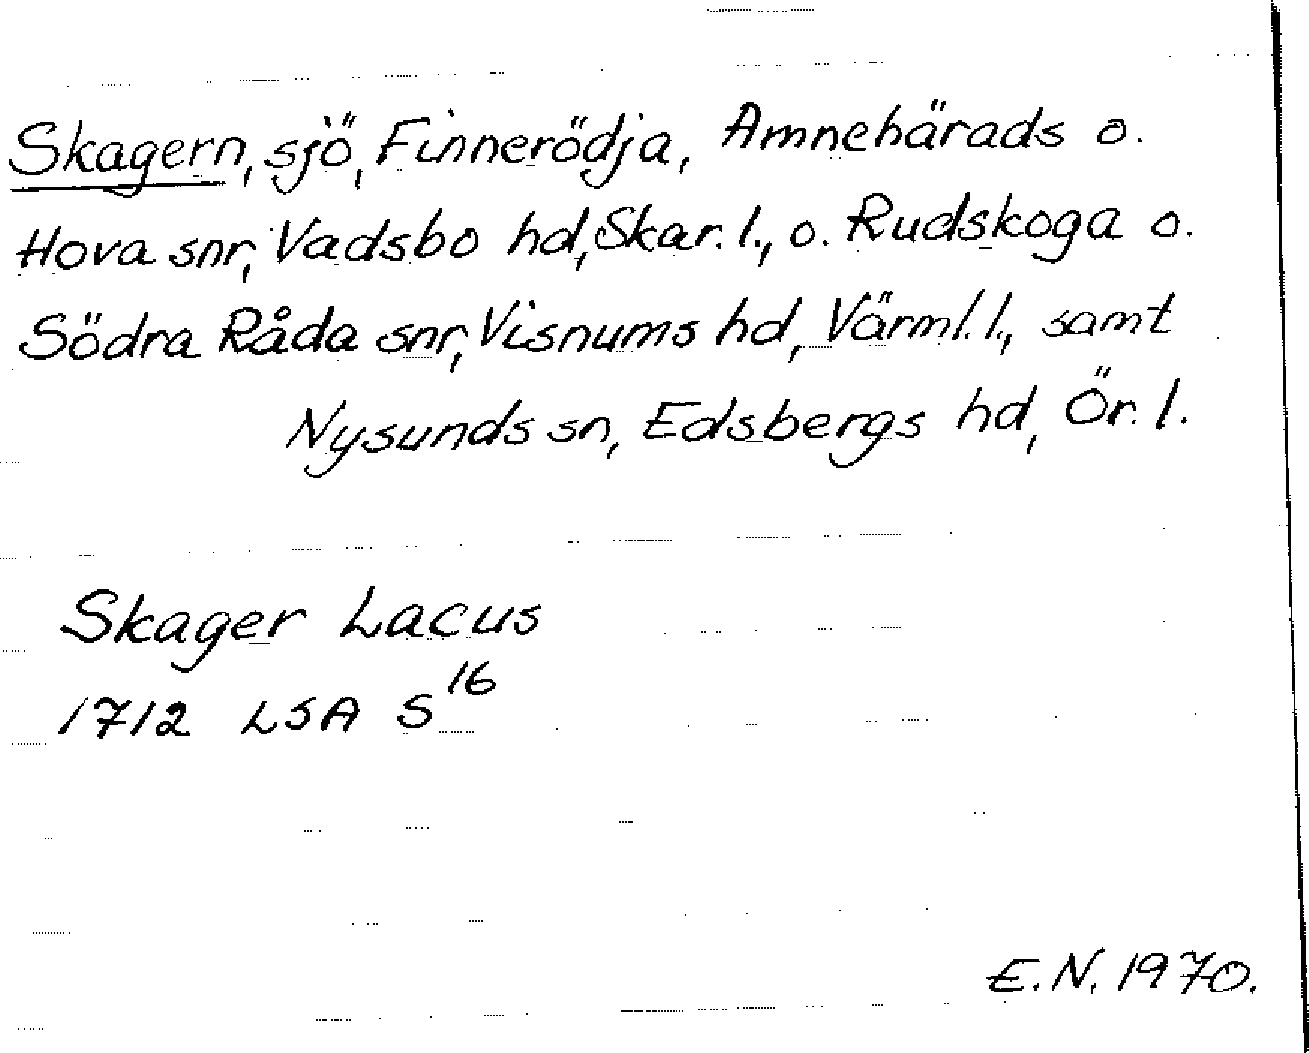 Skagern, sjö, Finnerödja, Amnehärads o.
Hova snr, Vadsbo hd, Skar. l., o. Rudskoga o.
Södra Råda snr, Visnums hd, Värml. l., samt
Nysunds sn, Edsbergs hd, Ör. l.
Skager Lacus
1712 LSA S¹⁶
E.N. 1970.